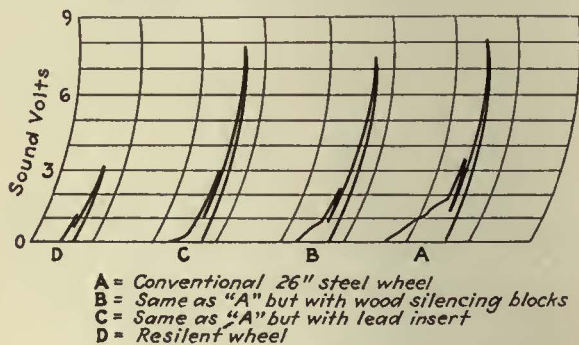 9
6
3
0
Sound Volts
D C B A
A = Conventional 26" steel wheel
B = Same as "A" but with wood silencing blocks
C = Same as "A" but with lead insert
D = Resilent wheel